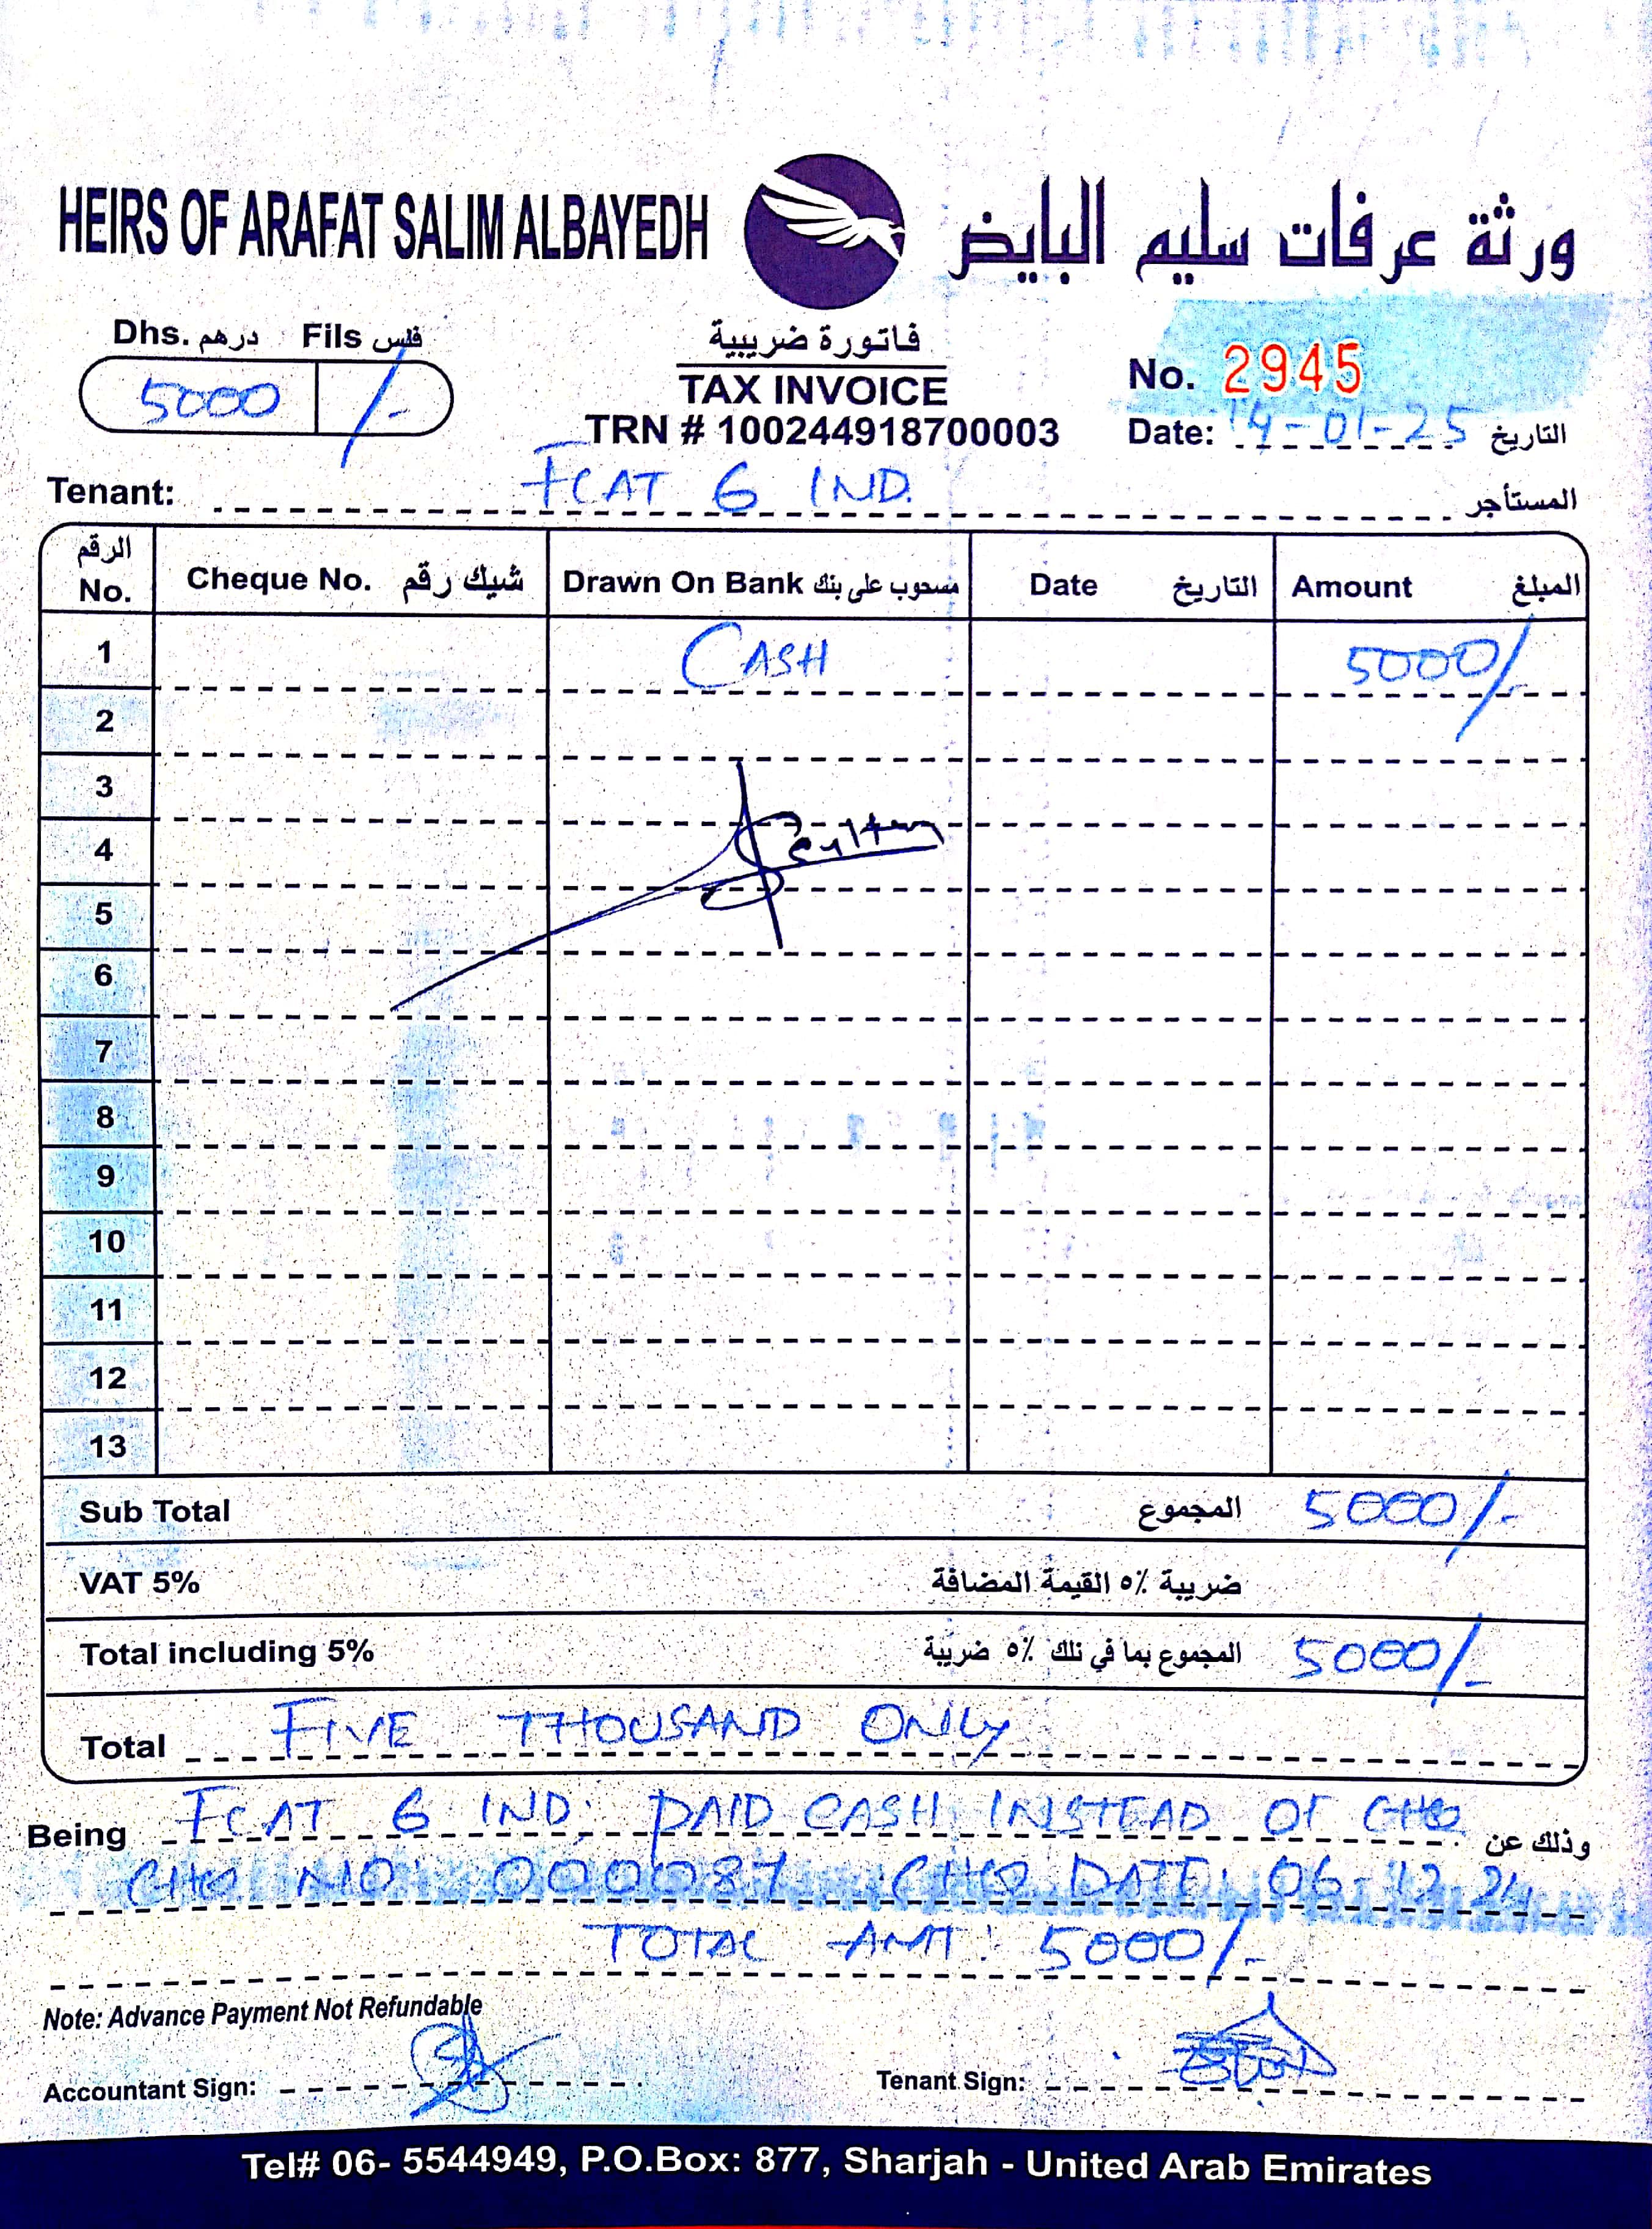 HEIRS OF ARAFAT SALIM ALBAYEDH
ورثة عرفات سليم البايض
Dhs. درهم Fils فلس
5000 /-
فاتورة ضريبية
TAX INVOICE
TRN # 100244918700003
No. 2945
Date: 14-01-25 التاريخ
Tenant: FCAT 6 IND. المستأجر
الرقم No. Cheque No. شيك رقم Drawn On Bank مسحوب على بنك Date التاريخ Amount المبلغ
1 CASH 5000/-
2
3
4 Sultan
5
6
7
8
9
10
11
12
13
Sub Total المجموع 5000/-
VAT 5% ضريبة ٥٪ القيمة المضافة
Total including 5% المجموع بما في ذلك ٥٪ ضريبة 5000/-
Total FIVE THOUSAND ONLY
Being FCAT 6 IND: PAID CASH INSTEAD OF CHQ وذلك عن
CHQ NO: 000087 CHQ DATE: 06-12-24
TOTAL AMT: 5000/-
Note: Advance Payment Not Refundable
Accountant Sign: Tenant Sign:
Tel# 06- 5544949, P.O.Box: 877, Sharjah - United Arab Emirates